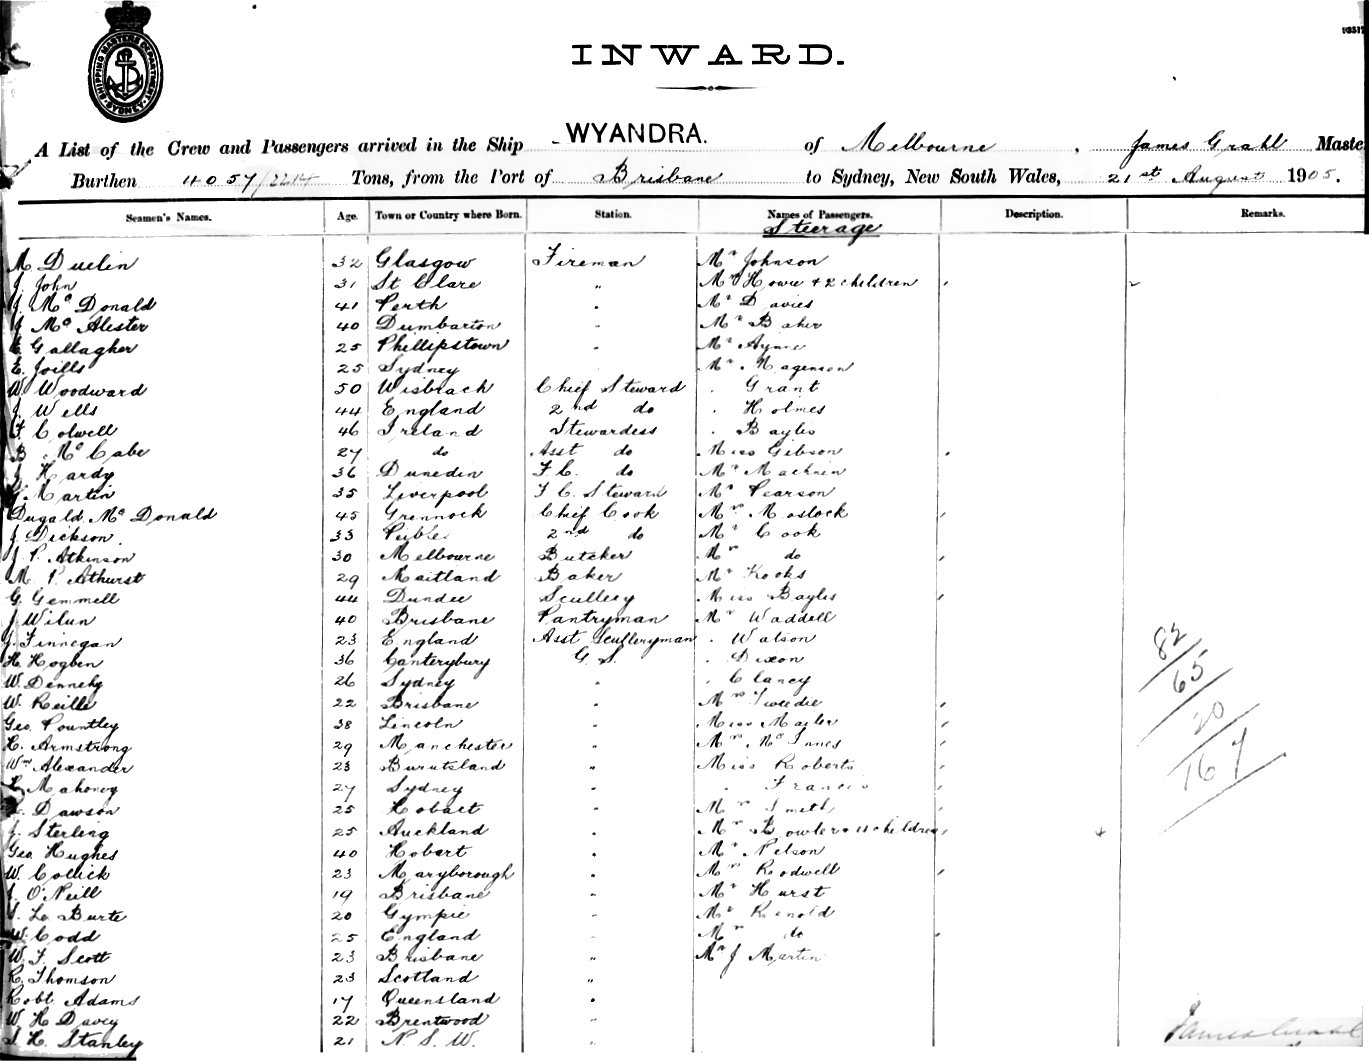 SHIPPING MASTERS DEPARTMENT SYDNEY
INWARD.
A List of the Crew and Passengers arrived in the Ship WYANDRA. of Melbourne, James Grahl Maste
Burthen 4057/2214 Tons, from the Port of Brisbane to Sydney, New South Wales, 21st August 1905.
Seamen's Names. Age. Town or Country where Born. Station. Names of Passengers. Description. Remarks.
Steerage
M Duelin 32 Glasgow Fireman Mr Johnson
J. John 31 St Clare " Mrs Howie + 2 children
J. McDonald 41 Perth " Mr Davies
J McAlester 40 Dumbarton " Mr Baker
E Gallagher 25 Phillipstown " Mr Aynne
E. Joills 25 Sydney Mr Magenson
W Woodward 50 Wisbeach Chief Steward " Grant
J Wells 44 England 2nd do " Holmes
F Colwell 46 Ireland Stewardess " Bayles
B McCabe 27 do Asst do Miss Gibson
J Hardy 36 Dunedin F.C. do Mr Machnin
G Martin 35 Liverpool F.C. Steward Mr Pearson
Dugald McDonald 45 Grennock Chief Cook Mrs Moslock
J. Dickson 33 Peibles 2nd do Mr Cook
J. P. Atkinson 30 Melbourne Butcher Mrs do
M P. Athurst 29 Maitland Baker Mr Kooks
G. Gemmell 44 Dundee Scullery Miss Bayles
J Wilun 40 Brisbane Pantryman Mr Waddell
J. Finnegan 23 England Asst Sculleryman " Watson
H. Hogben 36 Canterybury G. S. " Dixon
W. Dennehy 26 Sydney " " Clancy
W. Reille 22 Brisbane " Mrs Tweedie
Geo Pountley 38 Lincoln " Miss Mayler
H. Armstrong 29 Manchester " Mrs McInnes
Wm Alexander 23 Burutsland " Miss Roberts
Mahoney 27 Sydney " " Francis
Dawson 25 Hobart " Mrs Smith
J. Sterling 25 Auckland " Mrs Bowler + 4 children
Geo Hughes 40 Hobart " Mr Nelson
W. Collick 23 Maryborough " Mrs Rodwell
J. O'Neill 19 Brisbane " Mr Hurst
S. Le Burte 20 Gympie " Mr Renold
W. Codd 25 England " Mrs do
W. F. Scott 23 Brisbane " Mr J Martin
R. Thomson 23 Scotland "
Robt Adams 17 Queensland "
W H Davey 22 Brentwood "
S. H. Stanley 21 N. S. W. "
82
65
20
167
James Grahl